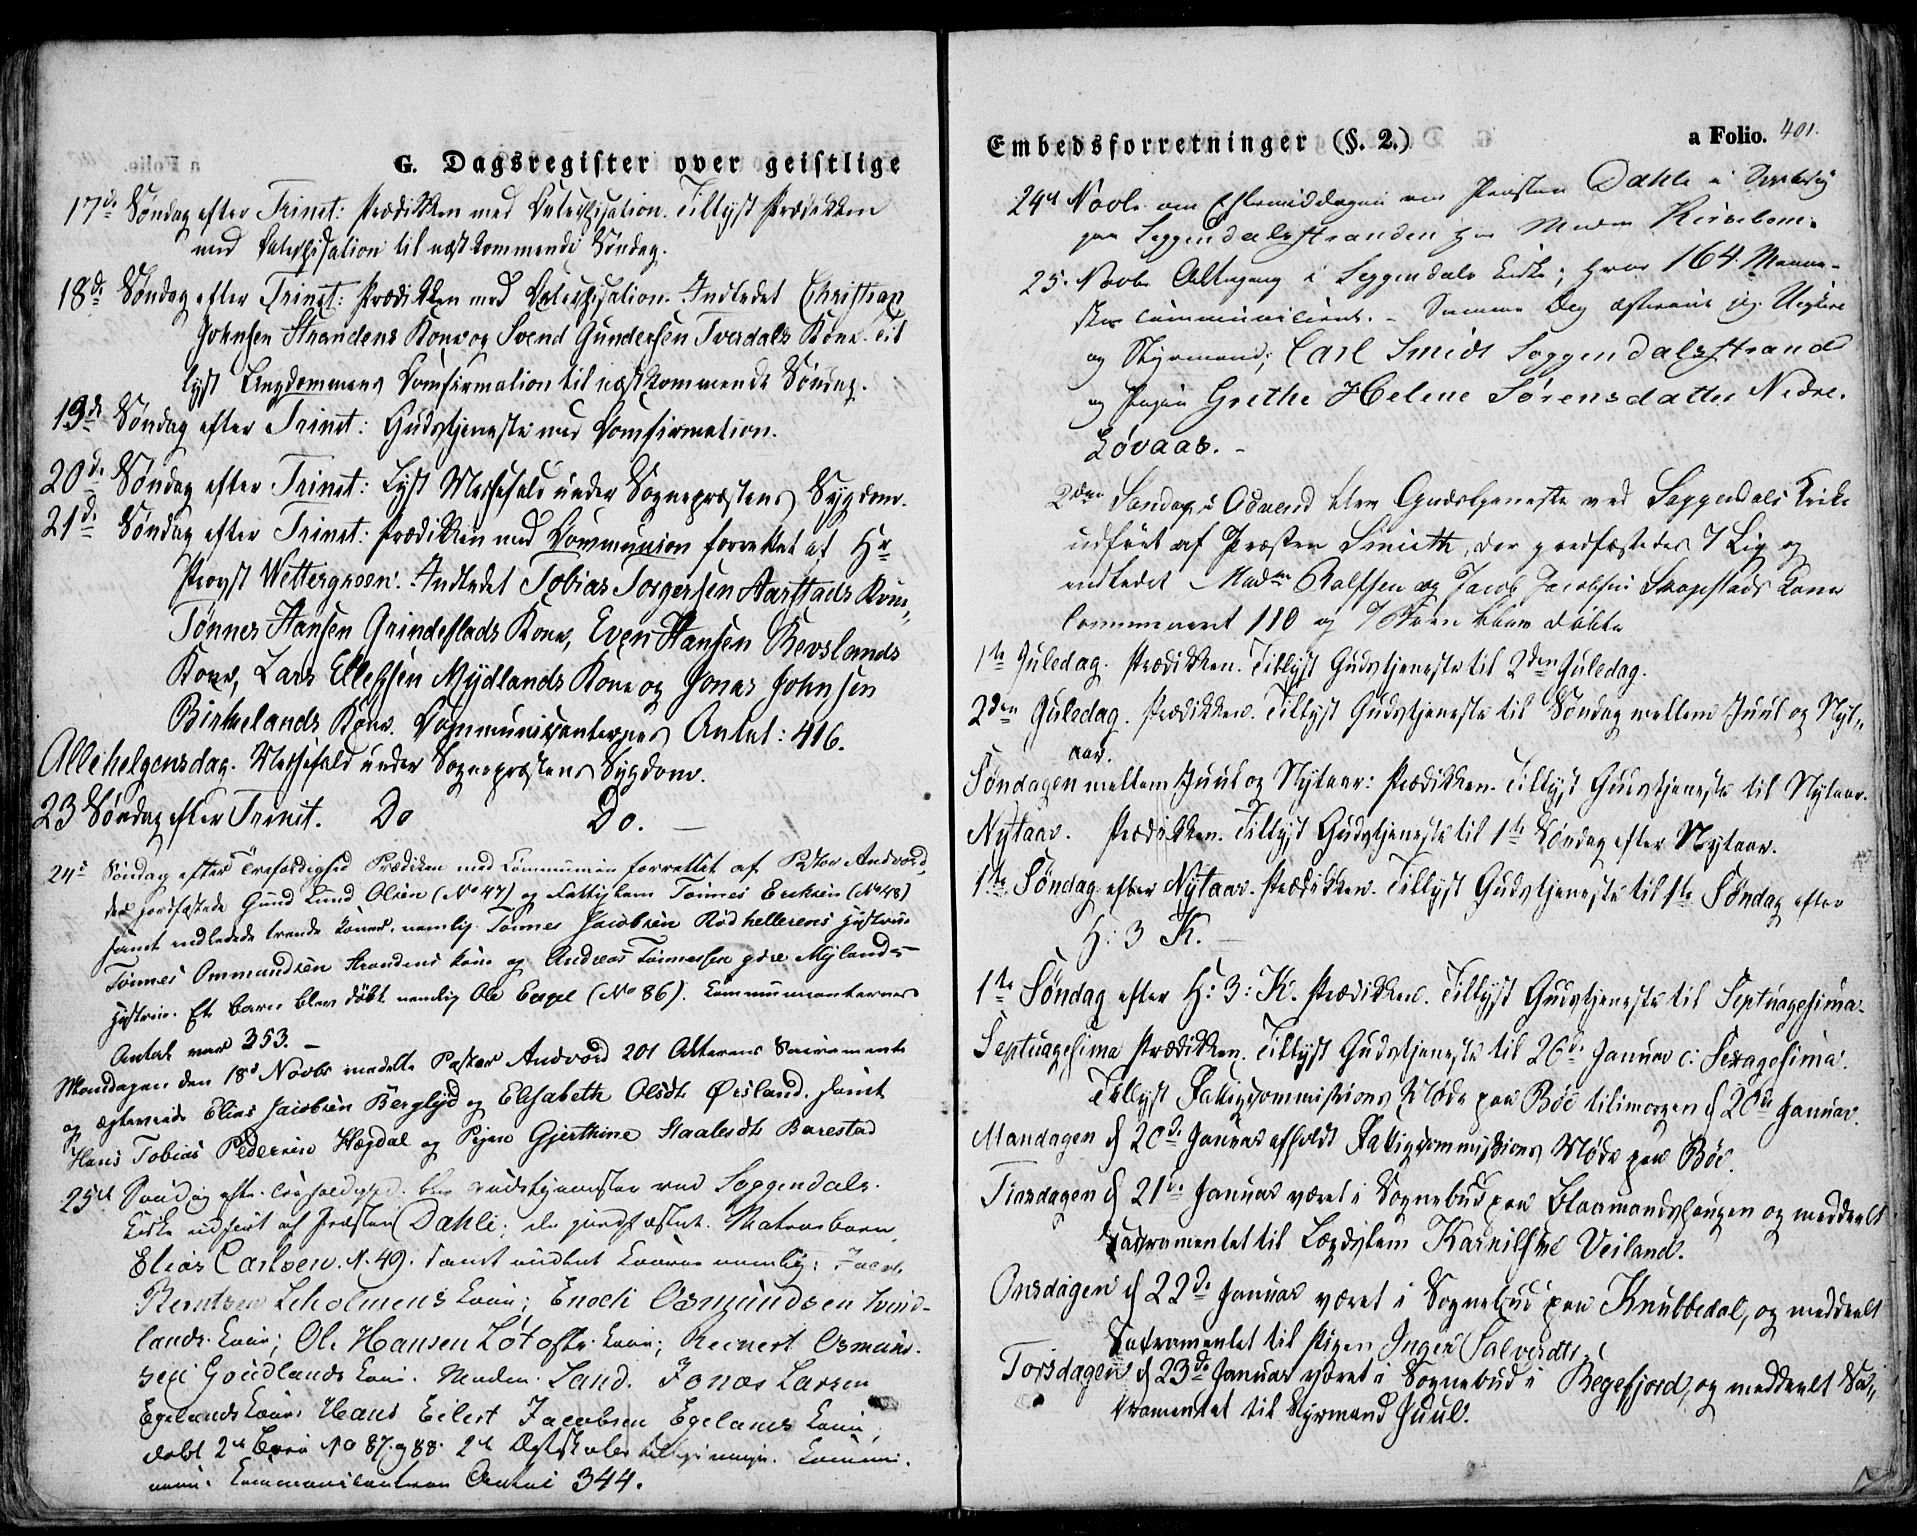 G. Dagsregister over geistlige
17de Søndag efter Trinit: Prædikken med Catechisation. Tillyst Prædikken
med Catechisation til næstkommende Søndag.
18de Søndag efter Trinit: Prædikken med Catechisation. Indledet Christian
Johnsen Strandens Kone og Svend Gundersen Tverdals Kone. Til
lyst Ungdommens Comfirmation til næstkommende Søndag.
19de Søndag efter Trinit: Gudstjeneste med Comfirmation.
20de Søndag efter Trinit: Lyst Messefald under Sognepræstens Sygdom.
21de Søndag efter Trinit: Prædikken med Communion forrettet af Hr
Provst Wettergreen. Indledet Tobias Torgersen Aarstads Kone,
Tønnes Hansen Grindeslads Kone, Even Hansen Revslands
Kone, Lars Ellefsen Mydlands Kone og Jonas Johnsen
Birkelands Kone. Communicanternes Antal: 416.
Allehelgensdag. Messefald under Sognepræstens Sygdom.
23 Søndag efter Trinit. Do Do. –
24de Søndag efter Trefoldighed Prædiken med Communion forrettet af Pastor Andvord,
der jordfæstede Gunild Olsen (No 47) og Fattiglem Tønnes Eriksen (No 48)
samt indledede trende Koner, nemlig Tønnes Jacobsen Rødhellerens Hustrue
Tønnes Ommundsen Strandens Kone og Andreas Tønnessen Mylands
Hustrue. Et Barn blev døbt nemlig Ole (No 86). Communicanternes
Antal var 353. –
Mandagen den 18de Novbr meddelte Pastor Andvord 201 Alterens Sacramente
og ægteviede Elias Jacobsen Berglyd og Elisabeth Olsdt Øisland, samt
Hans Tobias Pedersen Hægdal og Pigen Gjerthine Staalesdt Barestad
25de Søndag efter Trefoldighed blev Gudstjenesten ved Soggendals
Kirke udført af Præsten Dahle; der jordfæstet Matrosbarn
Elias Carlsen N. 49. samt indledet Konerne nemlig: Jacob
Berntsen Leholmens Kone; Enoch Osmundsen
lands Kone; Ole Hansen Løtofts Kone; Reinert Osmund-
sen Goudlands Kone. Madm. Sand. Jonas Larsen
Egelands Kone. Hans Eilert Jacobsen Egelands Kone,
døbt 2de Børn No 87. og 88. 2de Ægteskaber
Communicanternes Antal 344.
Embedsforretninger (§. 2.) a Folio. 401.
24de Novbr om Eftermiddagen var Præsten Dahle i
paa Soggendalsstranden hos Madm
25. Novbr Altergang i Soggendals Kirke; hvor 164 Menne-
sker communicerede. – Samme Dag ægteviet
og Styrmand; Carl Smidt Soggendalsstrand
og Pigen Grethe Helene Sørensdatter Nedre.
Løvaas. –
2den Søndag i Advend blev Gudstjeneste ved Soggendals Kirke
udført af Præsten Smith, der jordfæstedes 7 Lig og
indledet Madm Ralfsen og Jacob Jacobsen Skapstads Kone
Communeret 110 og 7 Børn bleve døbte
1ste Juledag. Prædikken. Tillyst Gudstjeneste til 2den Juledag.
2den Juledag. Prædikken. Tillyst Gudstjeneste til Søndag mellem Juul og Nyt-
aar.
Søndagen mellem Juul og Nytaar: Prædikken. Tillyst Gudstjeneste til Nytaar.
Nytaar. Prædikken. Tillyst Gudstjeneste til 1ste Søndag efter Nytaar.
1ste Søndag efter Nytaar. Prædikken. Tillyst Gudstjeneste til 1ste Søndag efter
H: 3 K. –
1ste Søndag efter H: 3: K. Prædikken. Tillyst Gudstjeneste til Septuagesima.
Septuagesima Prædikken. Tillyst Gudstjeneste til 26de Januar c: Sexagesima.
Tillyst Fattigcommissions Møde paa Bøe tilimorgen d 20de Januar.
Mandagen d 20de Januar afholdt Fattigcommissions Møde paa Bøe.
Tirsdagen d 21de Januar været i Sognebud paa Blaamandshougen og meddeelt
Sacramentet til Lægdslem Karnilsine Veiland.
Onsdagen d 22de Januar været i Sognebud paa Knubbedal, og meddeelt
Sacramentet til Pigen Inger Salvesdtr.
Torsdagen d 23de Januar været i Sognebud i Regefjord, og meddeelt Sa-
cramentet til Styrmand Juul.